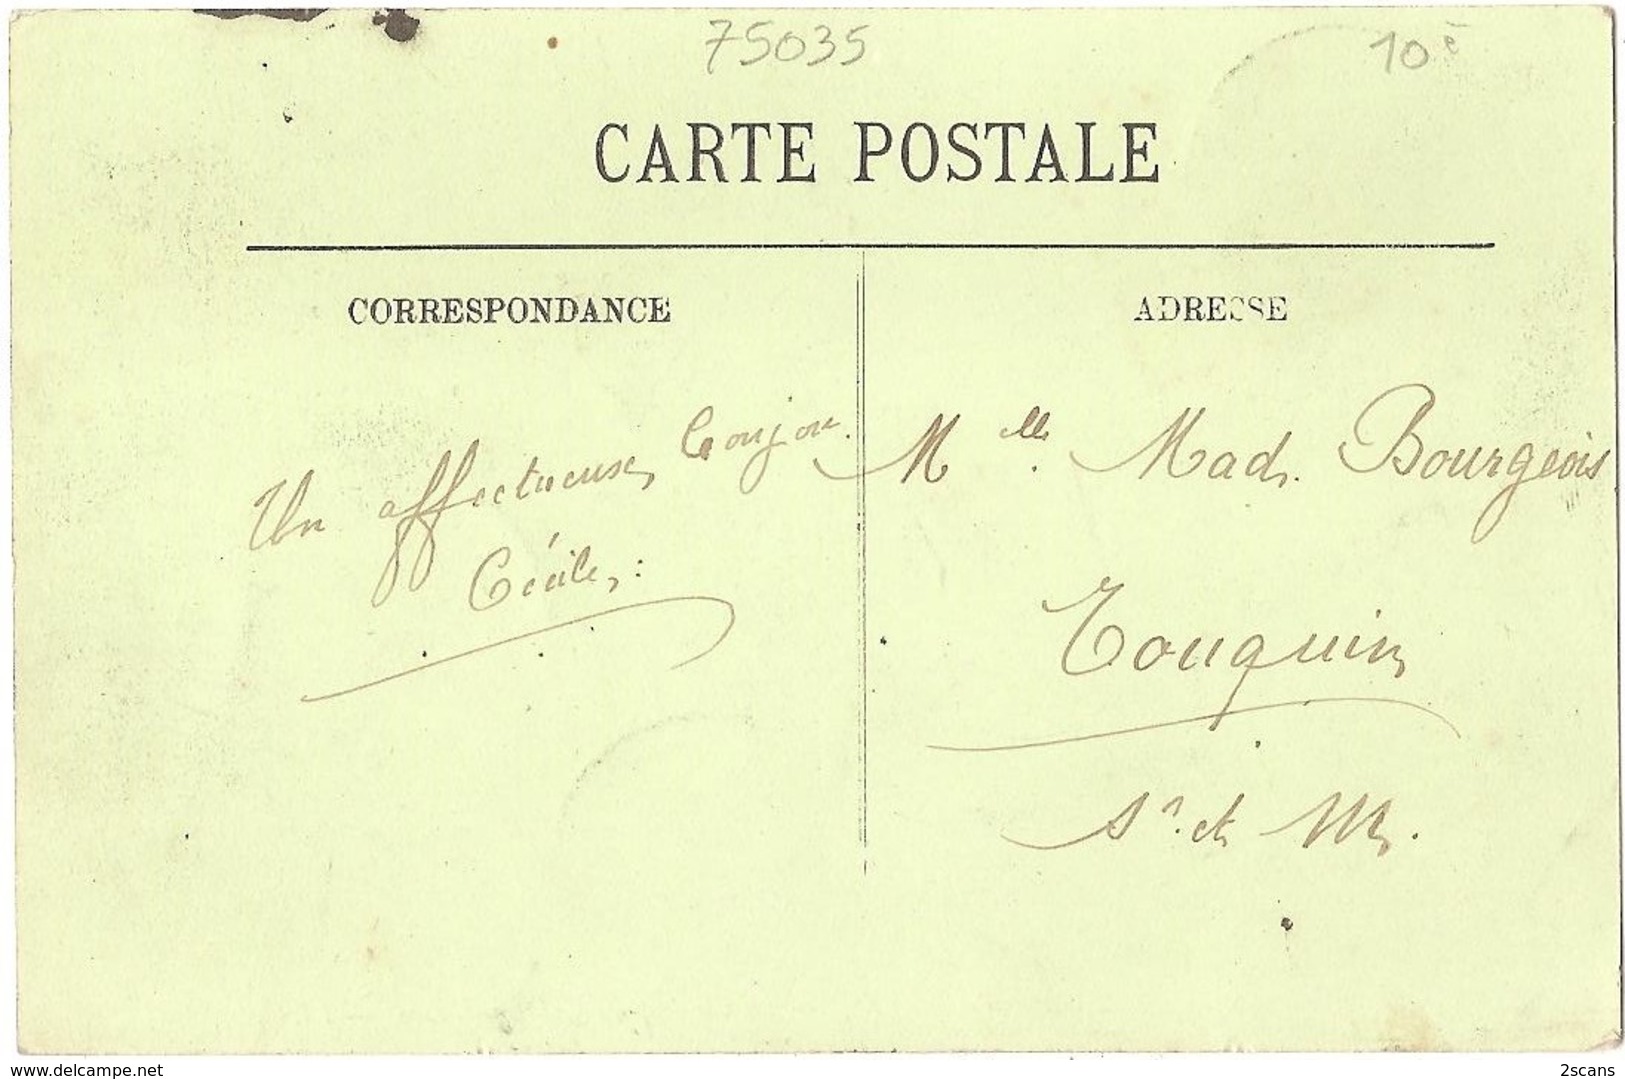 75035
10è
CARTE POSTALE
CORRESPONDANCE
ADRESSE
Un affectueux bonjour.
Cécile.
Mlle. Mad. Bourgeois
Touquin
Sne. et M.
www.delcampe.net
2scans